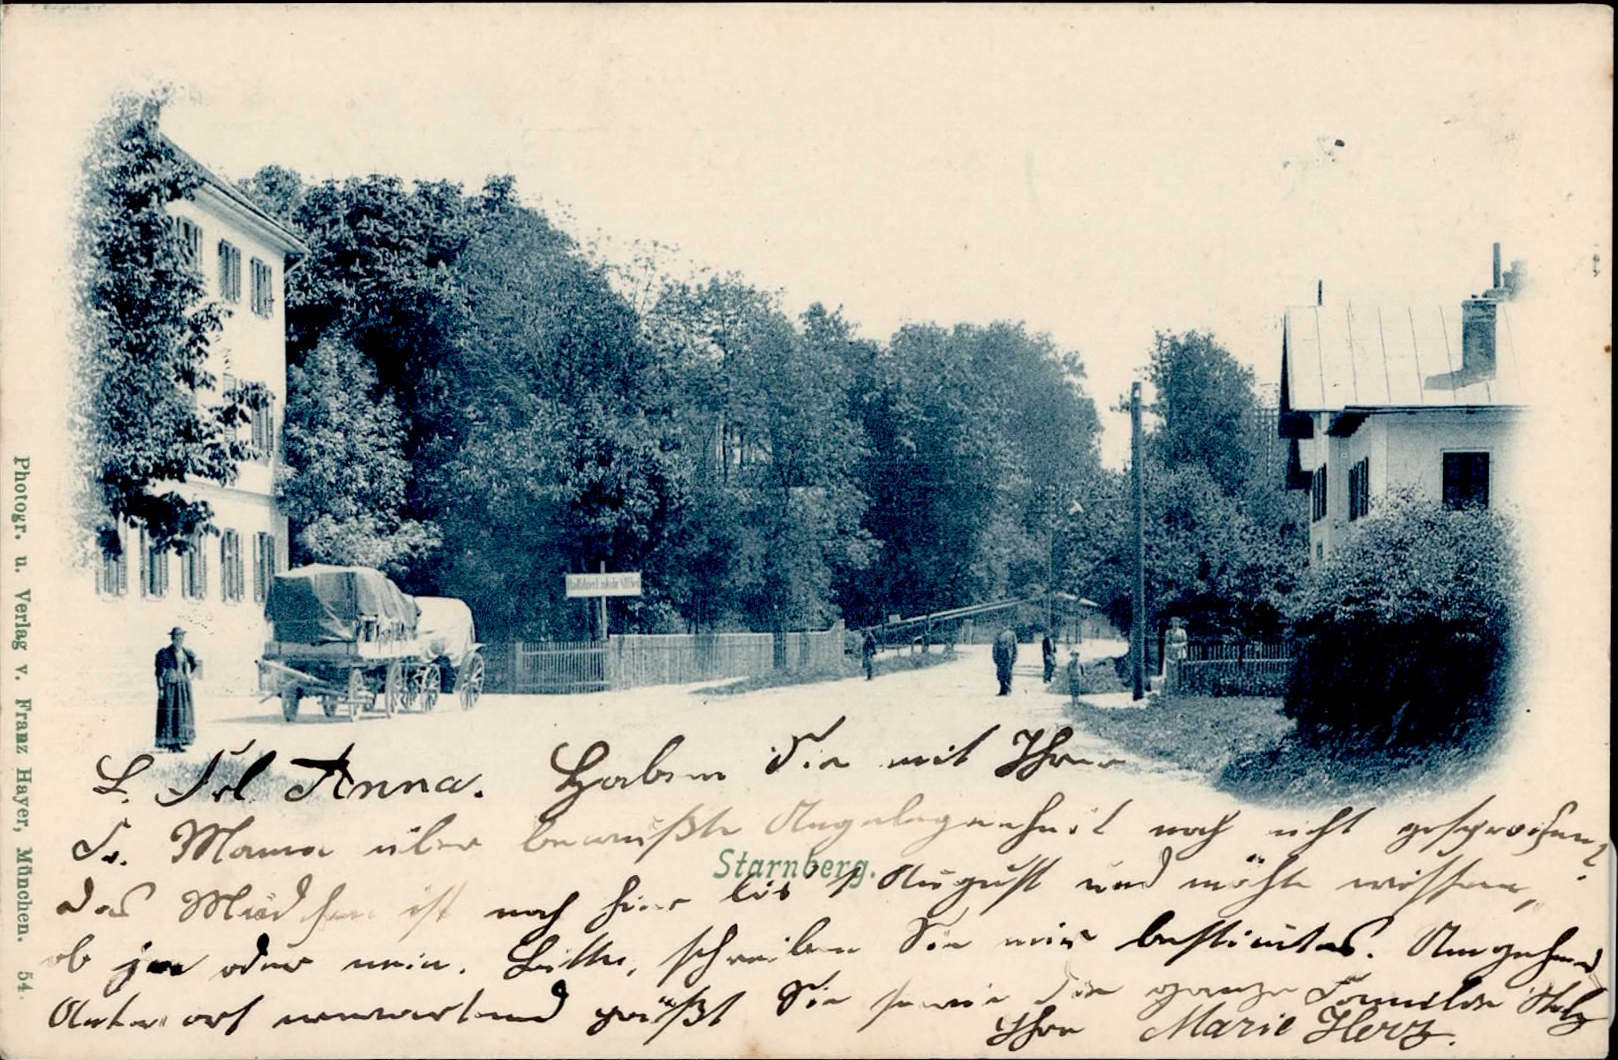 L. Frl Anna. Haben Sie mit Ihrer
Fr. Mama über bewußte Angelegenheit noch nicht gesprochen?
Das Mädchen ist noch hier bis 1 August und möchte wissen,
ob ja oder nein. Bitte, schreiben Sie mir bestimtes. Umgehend
Antwort erwartend grüßt Sie sowie die ganze Familie
Ihre Marie Herz.
Starnberg.
Photogr. u. Verlag v. Franz Hayer, München. 54.